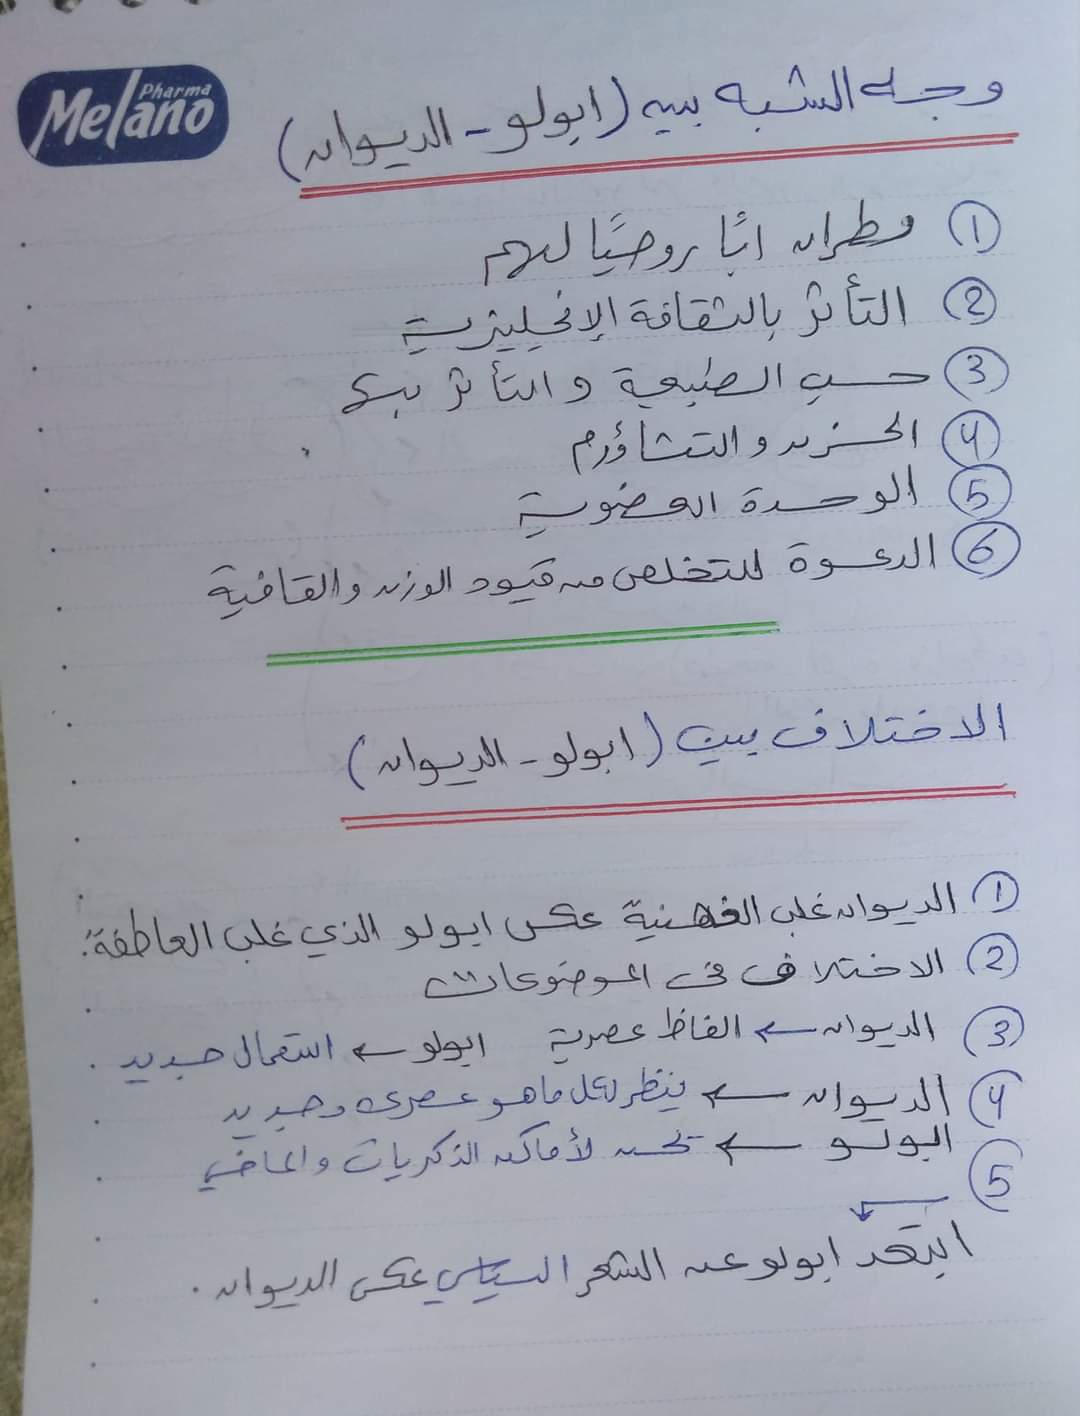 Pharma
Melano
وجه الشبه بين (ابولو - الديوان)
① مطران ابًا روحيًا لهم
② التأثر بالثقافة الإنجليزية
③ حب الطبيعة والتأثر بها
④ الحزن والتشاؤم
⑤ الوحدة العضوية
⑥ الدعوة للتخلص من قيود الوزن والقافية
الاختلاف بين (ابولو - الديوان)
① الديوان غلب الذهنية عكس ابولو الذي غلب العاطفة.
② الاختلاف في الموضوعات
③ الديوان ← الفاظ عصرية ابولو ← استعمال جديد .
④ الديوان ← ينظر لكل ماهو عصرى وجديد
ابولو ← تحن لأماكن الذكريات والماضي
⑤ ابتعد ابولو عن الشعر السياسي عكس الديوان .